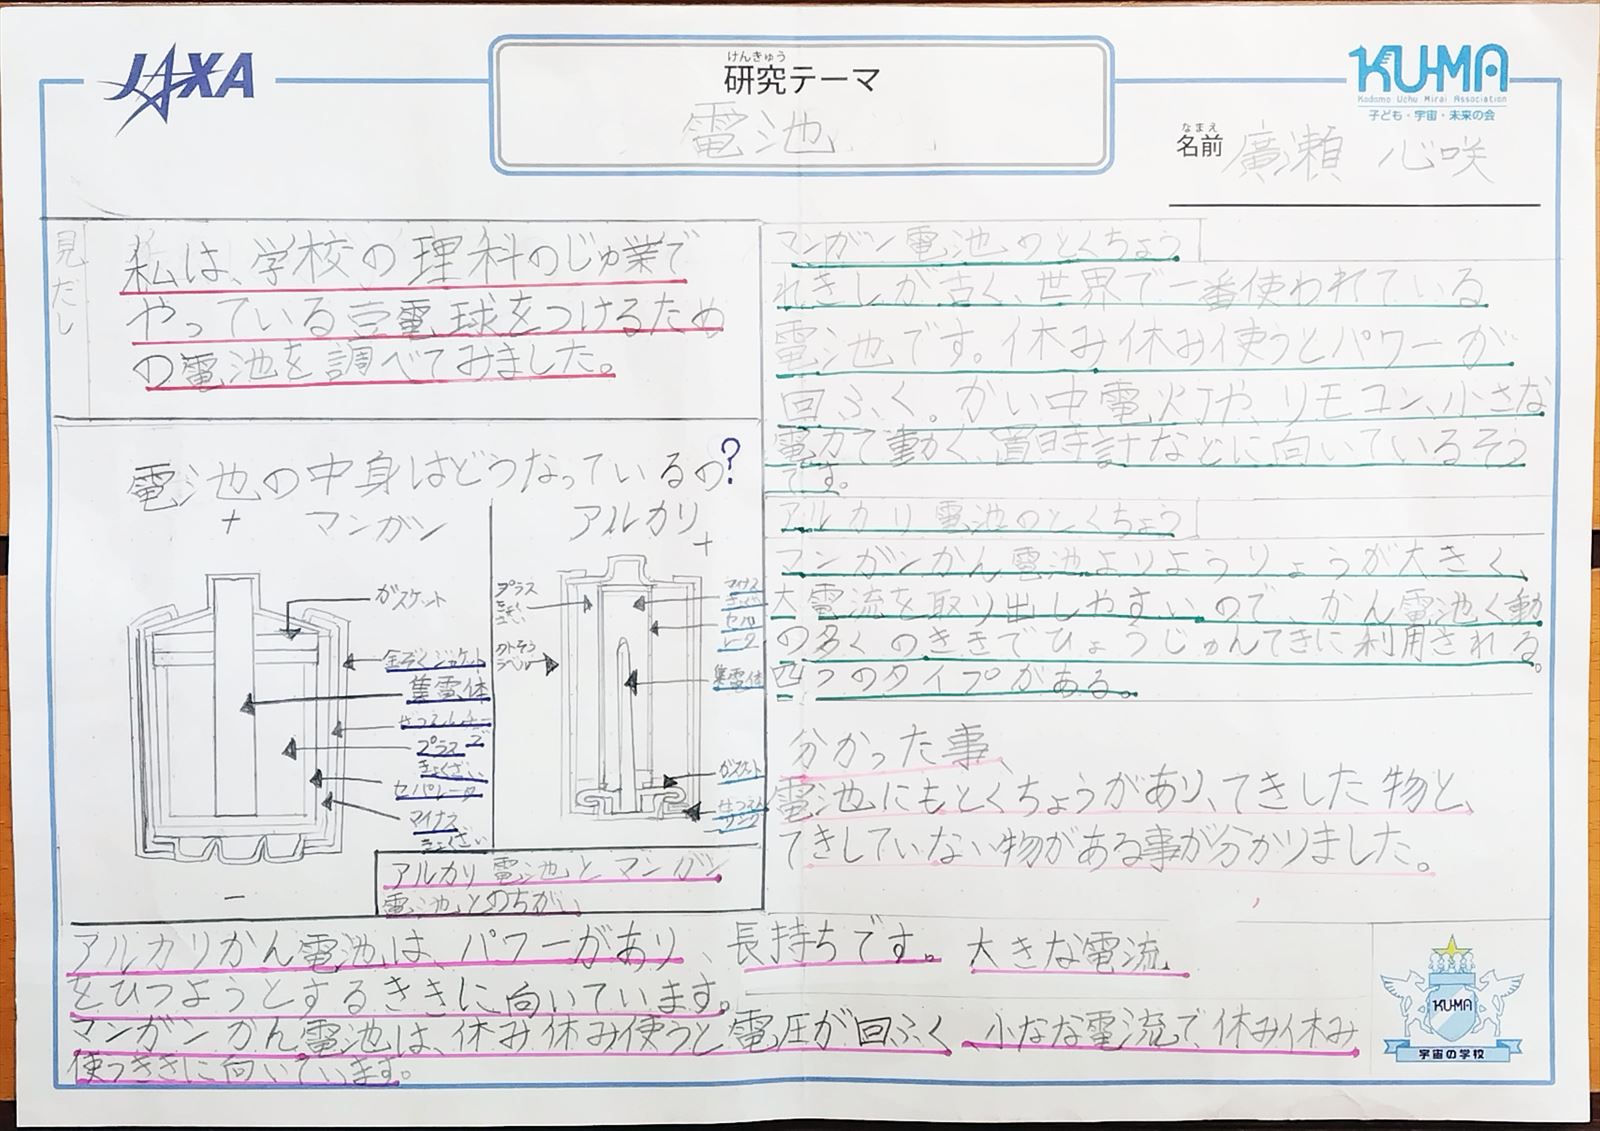 JAXA
けんきゅう
研究テーマ
電池
KU-MA
Kodomo Uchu Mirai Association
子ども・宇宙・未来の会
なまえ
名前 廣瀬 心咲
見だし
私は、学校の理科のじゅ業で
やっている豆電球をつけるため
の電池を調べてみました。
電池の中身はどうなっているの?
+ マンガン
ガスケット
金ぞくジャケット
集電体
プラス
きょくざい
セパレータ
マイナス
きょくざい
-
アルカリ
+
プラス
マイナス
セパ
レータ
集電体
ガスケット
アルカリ電池とマンガン
電池とのちがい
マンガン電池のとくちょう
れきしが古く、世界で一番使われている
電池です。休み休み使うとパワーが
回ふく。かい中電灯や、リモコン、小さな
電力で動く、置時計などに向いているそう
です。
アルカリ電池のとくちょう
マンガンかん電池よりようりょうが大きく、
大電流を取り出しやすいので、かん電池く動
の多くのききでひょうじゅんてきに利用される。
四つのタイプがある。
分かった事、
電池にもとくちょうがあり、てきした物と、
てきしていない物がある事が分かりました。
アルカリかん電池は、パワーがあり、長持ちです。大きな電流
をひつようとするききに向いています。
マンガンかん電池は、休み休み使うと電圧が回ふく、小なな電流で休み休み
使うききに向いています。
KU-MA
宇宙の学校